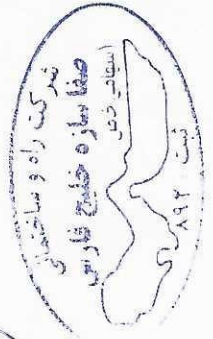 شرکت راه و ساختمانی
صفا سازه خلیج فارس
(سهامی خاص)
ثبت
۸۹۲